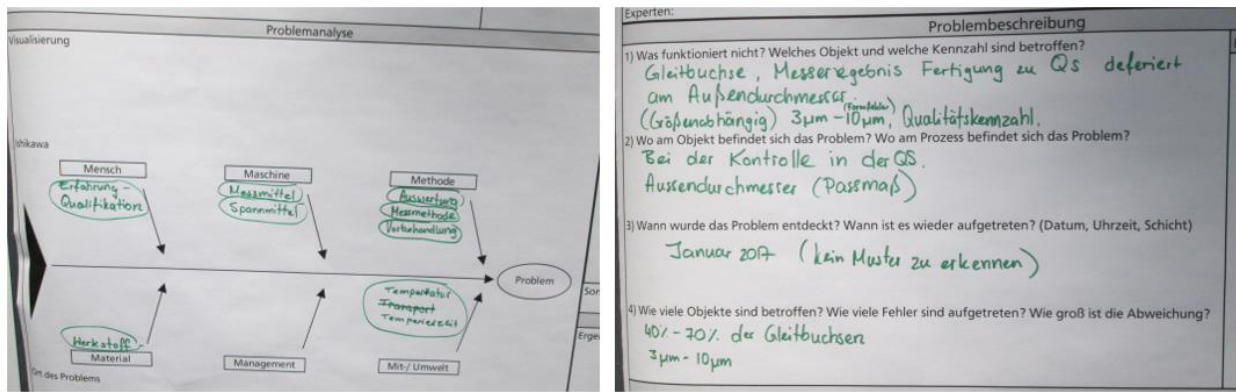 Problemanalyse
Visualisierung
Ishikawa
Mensch
Erfahrung -
Qualifikation
Maschine
Messmittel
Spannmittel
Methode
Auswertung
Messmethode
Vorbehandlung
Problem
Temperatur
Transport
Temperierzeit
Werkstoff
Material
Management
Mit-/ Umwelt
Ort des Problems
Experten:
Problembeschreibung
1) Was funktioniert nicht? Welches Objekt und welche Kennzahl sind betroffen?
Gleitbuchse, Messeregebnis Fertigung zu Qs deferiert
am Außendurchmesser.
(Formfehler)
(Größenabhängig) 3µm - 10µm, Qualitätskennzahl.
2) Wo am Objekt befindet sich das Problem? Wo am Prozess befindet sich das Problem?
Bei der Kontrolle in der QS.
Aussendurchmesser (Passmaß)
3) Wann wurde das Problem entdeckt? Wann ist es wieder aufgetreten? (Datum, Uhrzeit, Schicht)
Januar 2017 (kein Muster zu erkennen)
4) Wie viele Objekte sind betroffen? Wie viele Fehler sind aufgetreten? Wie groß ist die Abweichung?
40% - 70% der Gleitbuchsen
3µm - 10µm